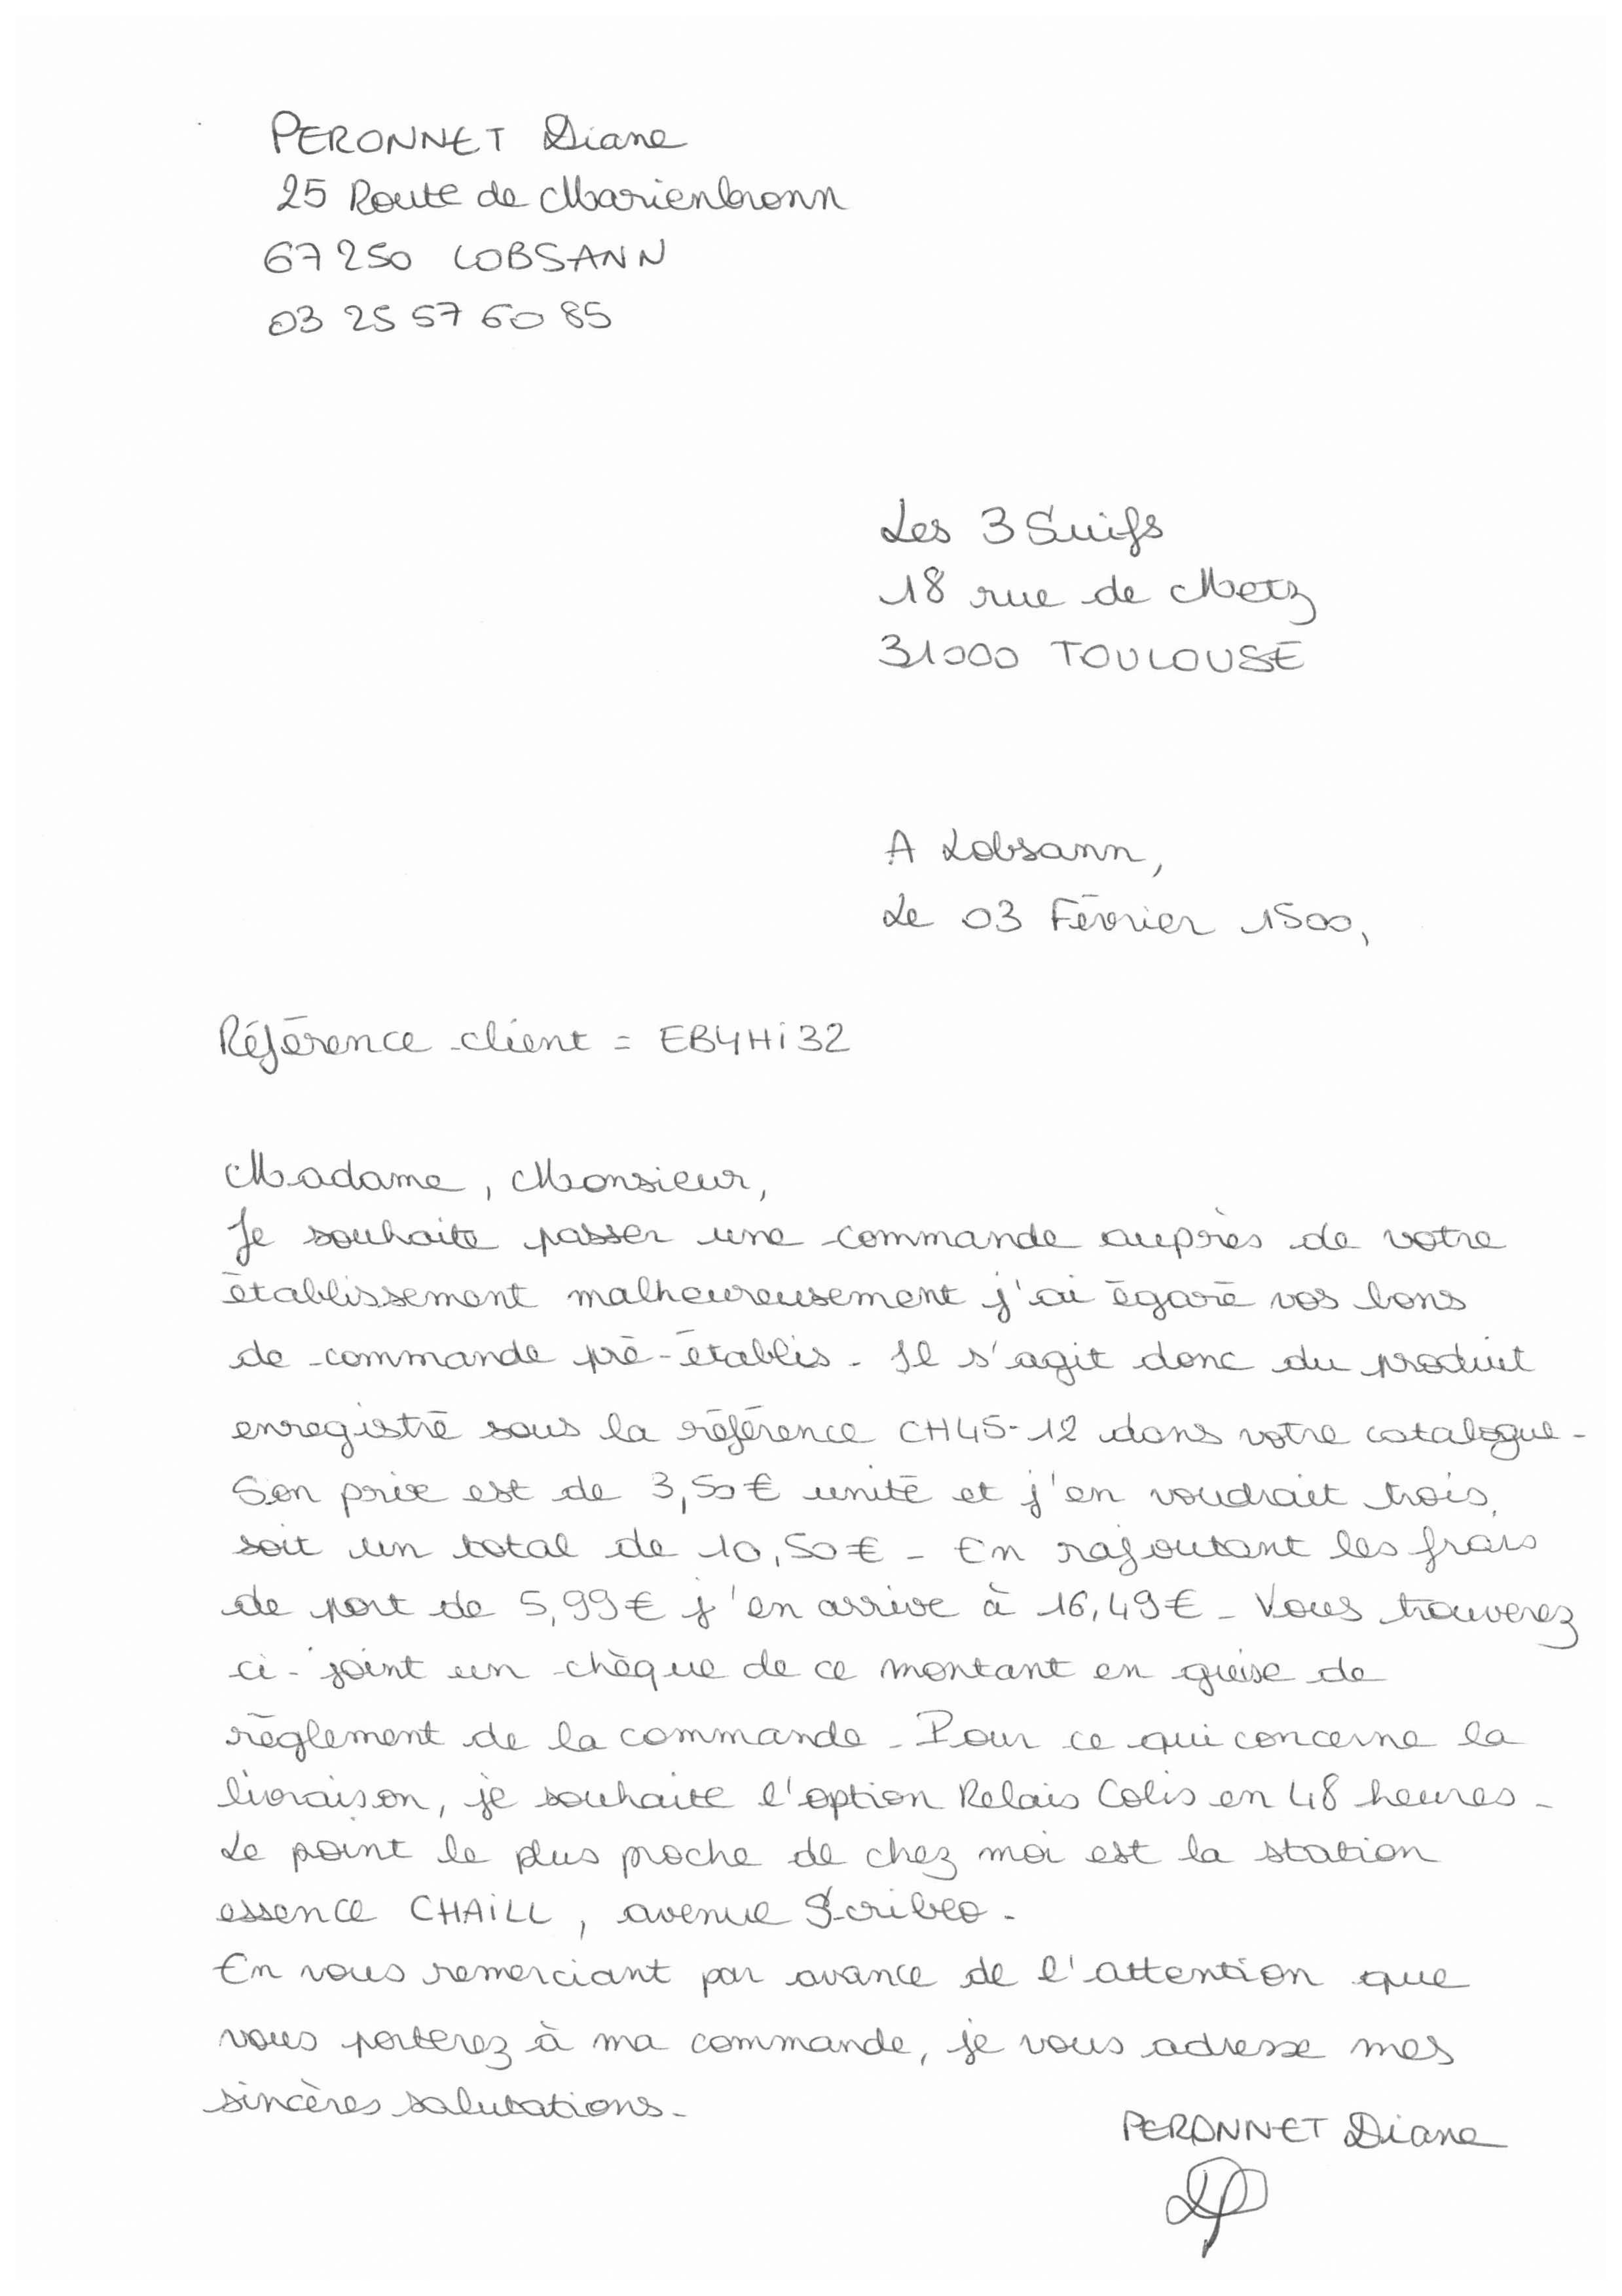 PERONNET Diane
25 Route de Marienbronn
67250 LOBSANN
03 25 57 60 85
Les 3 Suifs
18 rue de Metz
31000 TOULOUSE
A Lobsann,
Le 03 Février 1500,
Référence client = EB4Hi32
Madame, Monsieur,
Je souhaite passer une commande auprès de votre
établissement malheureusement j'ai égaré vos bons
de commande pré-établis. Il s'agit donc du produit
enregistré sous la référence CH45-12 dans votre catalogue.
Son prix est de 3,50€ unité et j'en voudrait trois,
soit un total de 10,50€. En rajoutant les frais
de port de 5,99€ j'en arrive à 16,49€. Vous trouverez
ci-joint un chèque de ce montant en guise de
règlement de la commande. Pour ce qui concerne la
livraison, je souhaite l'option Relais Colis en 48 heures.
Le point le plus proche de chez moi est la station
essence CHAiLL, avenue Scribeo.
En vous remerciant par avance de l'attention que
vous porterez à ma commande, je vous adresse mes
sincères salutations.
PERONNET Diane
DP